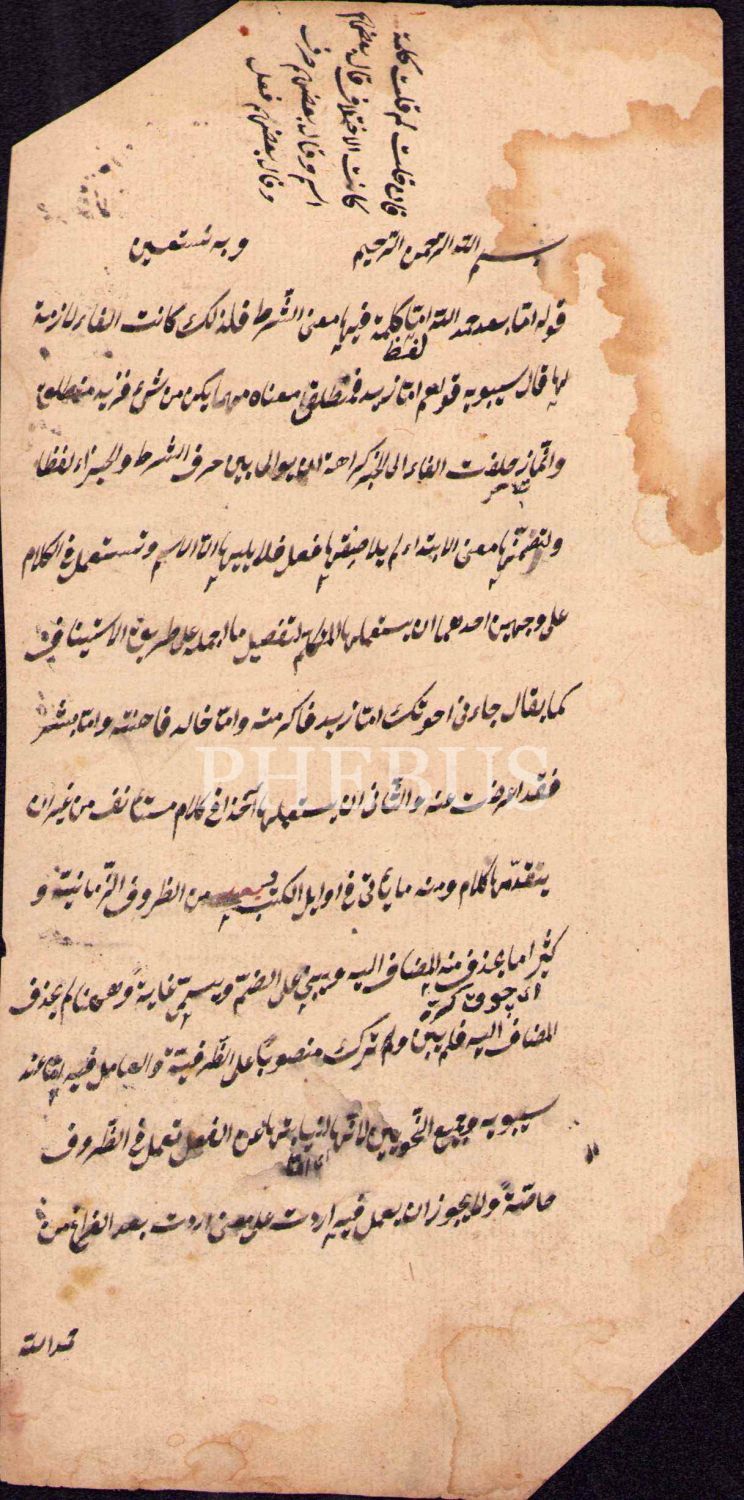 فان قلت لم قلت كلمة
كانت الاختلاف قال بعضهم
اسم وقال بعضهم حرف
وقال بعضهم فعل
بسم الله الرحمن الرحيم وبه نستعين
قوله اما بعد حمد الله اما كلمة فيها معنى الشرط فلذلك كانت الفاء لازمة
لفظ
لها قال سيبويه قولهم اما زيد فمنطلق معناه مهما يكن من شئ فزيد منطلق
وانما زحلفت الفاء الى الخبر كراهة ان يوالى بين حرف الشرط والجزاء لفظا
ولتضمنها معنى الابتداء لم يلاصقها فعل فلا يليها الا الاسم وتستعمل في الكلام
على وجهين احدهما ان يستعملها المتكلم لتفصيل ما اجمله على طريق الاستيناف
كما يقال جاءنى اخوتك اما زيد فاكرمته واما خالد فاهنته واما بشر
فقد اعرضت عنه والثانى ان يستعملها اخذا في كلام مستأنف من غير ان
يتقدمها كلام ومنه ما يأتى في اوايل الكتب وبعد من الظروف الزمانية و
كثيرا ما يحذف منه المضاف اليه ويبنى على الضم ويسمى غاية وههنا لم يحذف
المضاف اليه فلم يبن وترك منصوبا على الظرفية والعامل فيه اما عند
سيبويه وجميع النحويين لانها لنيابتها عن الفعل تعمل في الظروف
خاصة ولا يجوز ان يعمل فيه اردت على معنى اردت بعد الفراغ من
حمد الله